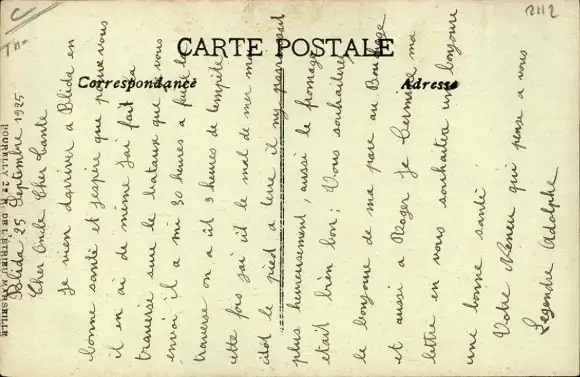 CARTE POSTALE
Correspondance
Adresse
2112
Blida 25 Septembre 1925
Cher Oncle Cher Tante
Je vien d'arriver a Blida en
bonne santé et j'espère que pour vous
il en ai de même j'ai fait la
traverse sure le bataux que je vous
envoi il a mi 30 heures a faire la
traverse on a ût 9 heures de tempête
cette fois j'ai ût le mal de mer mai
citôt le pied a terre il ny paraissait
plus heureusement, aussi le fromage
était bien bon; Vous souhaiterez
le bonjoure de ma pare au
et aussi a Roger Je termine ma
lettre en vous souhaiten un bonjoure
une bonne santé
Votre Neveu qui pense a vous
Legendre Adolphe